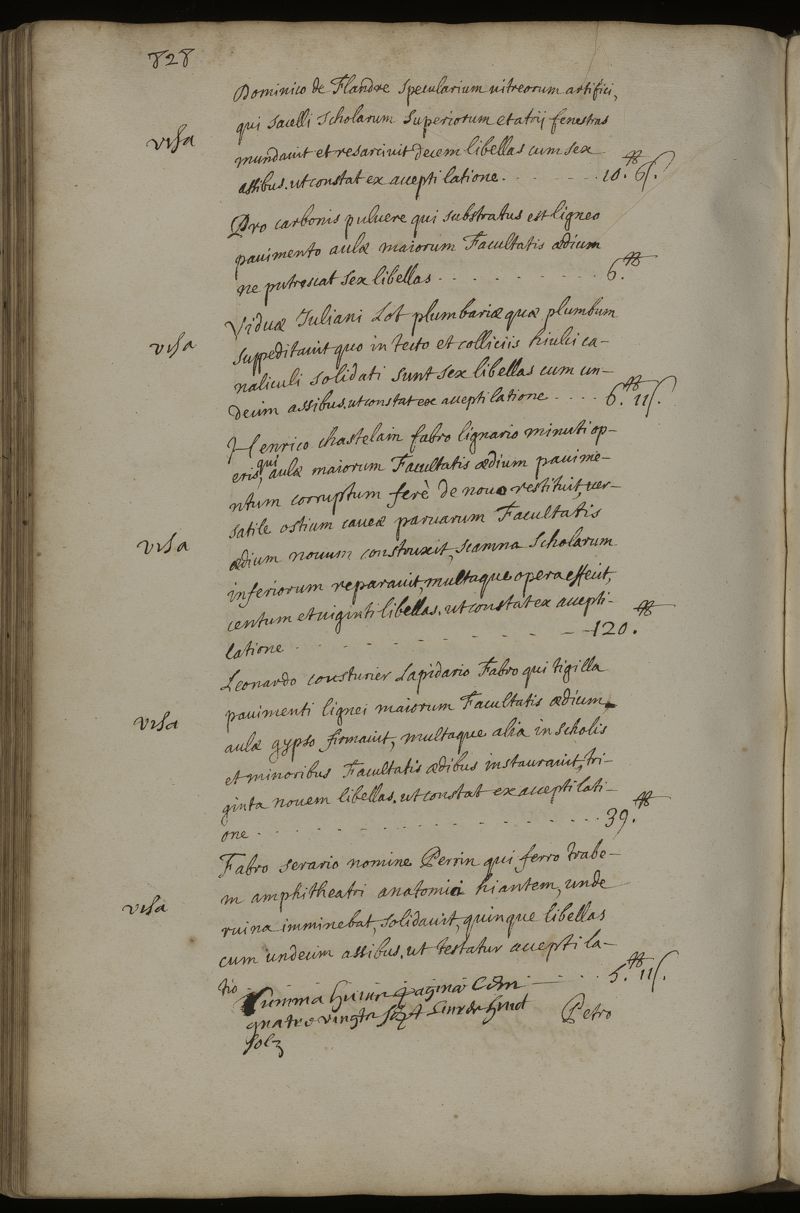 828
Dominico de Flandre specularium vitreorum artifici,
qui sacelli Scholarum Superiorum et atrij fenestras
visa
mundauit et resarciuit decem libellas cum sex
assibus. ut constat ex accepti latione. - - - - - - 10.ᵗᵗ 6ſ.
Pro carbonis puluere qui substratus est ligneo
pauimento aulæ maiorum Facultatis ædium
ne putrescat sex libellas - - - - - - - - - 6.ᵗᵗ
Viduæ Iuliani Lot plumbariæ quæ plumbum
visa
suppeditauit quo in tecto et colliciis hiulci ca-
naliculi solidati sunt sex libellas cum un-
decim assibus. ut constat ex accepti latione - - - - 6.ᵗᵗ 11ſ.
Henrico chastelain fabro lignario minuti op-
eris, qui aulæ maiorum Facultatis ædium pauime-
ntum corruptum ferè de nouo restituit, uer-
satile ostium caueæ paruarum Facultatis
visa
ædium nouum construxit, scamna Scholarum
inferiorum reparauit, multaque opera effecit,
centum et uiginti libellas. ut constat ex accepti-
latione - - - - - - - - - - - 120.ᵗᵗ
Leonardo cousturier Lapidario Fabro qui tigilla
pauimenti lignei maiorum Facultatis ædium
visa
aulæ gypso firmauit, multaque alia in scholis
et minoribus Facultatis ædibus instaurauit, tri-
ginta nouem libellas. ut constat ex accepti lati-
one - - - - - - - - - - - - - - 39.ᵗᵗ
Fabro serario nomine Perrin qui ferro trabe-
m amphitheatri anatomici hiantem, unde
visa
ruina imminebat, solidauit, quinque libellas
cum undecim assibus. ut testatur accepti la-
tio - - - - 5.ᵗᵗ 11ſ.
Summa huius paginæ Cent
quatre vingts sept Liur de huict
solz
Petro